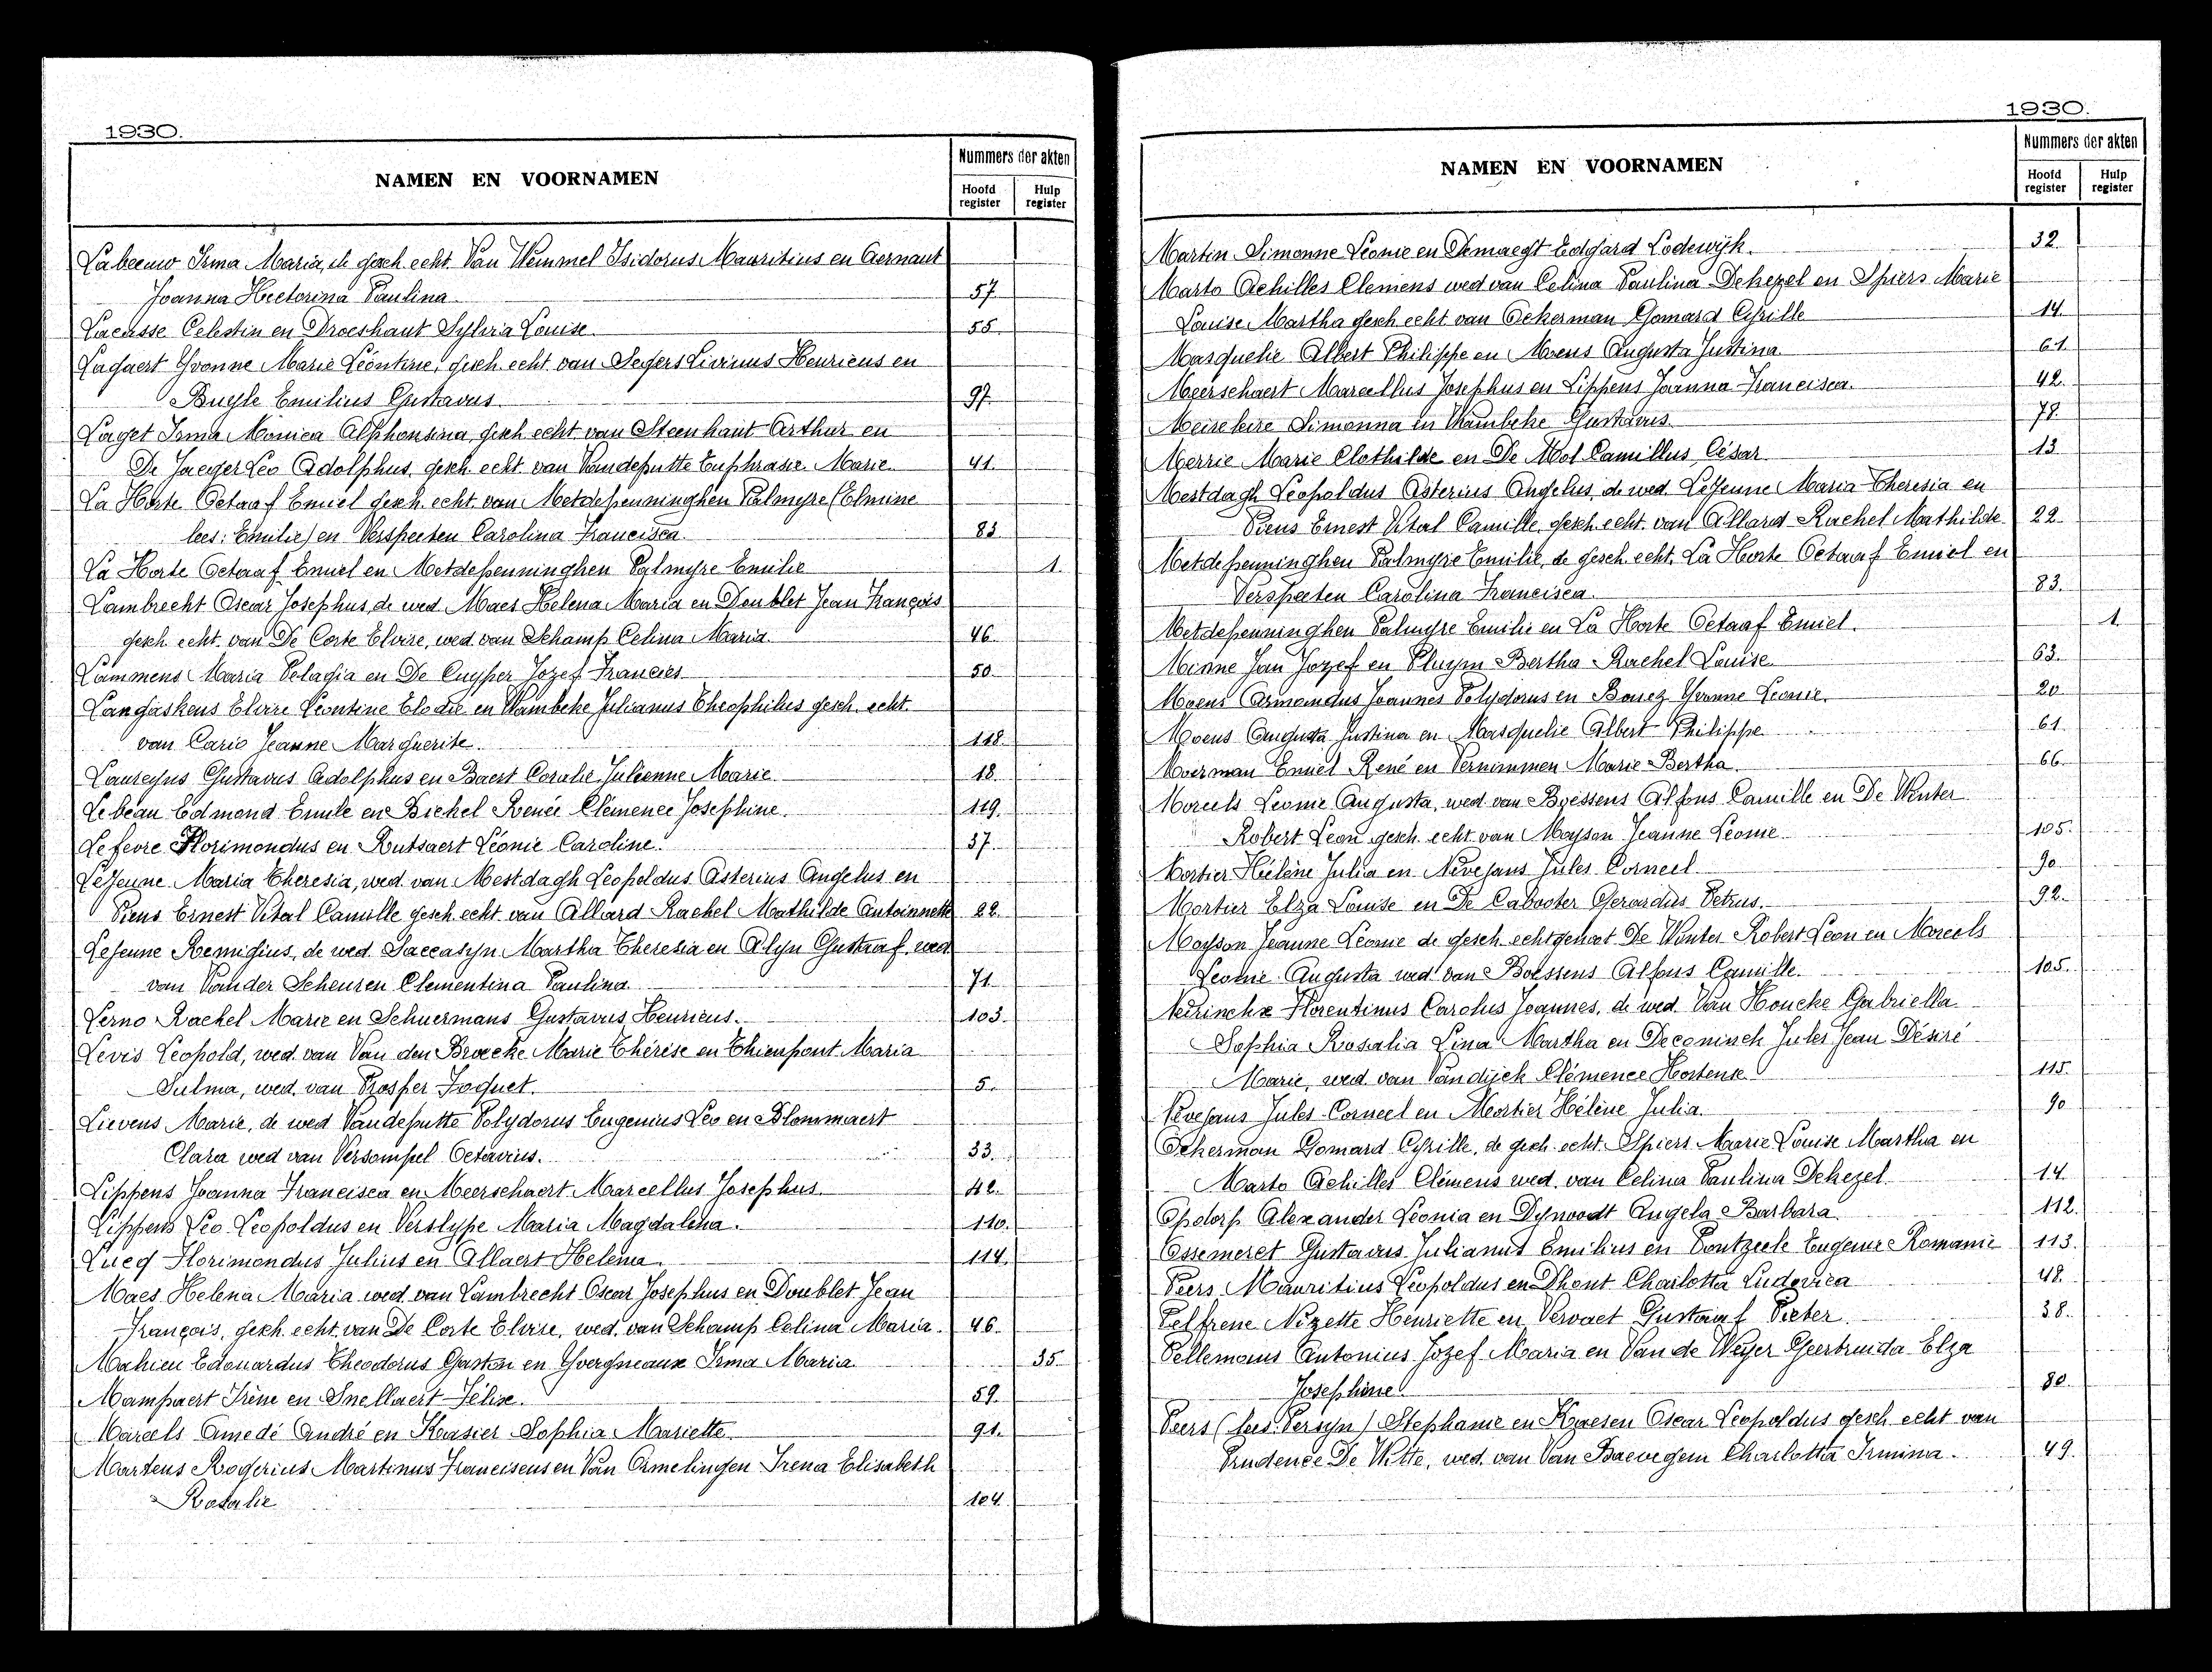 1930.
NAMEN EN VOORNAMEN
Nummers der akten
Hoofd register
Hulp register
Labeeuw Irma Maria, de gesch. echt. Van Wemmel Isidorus Mauritius en Aernaut
Joanna Hectorina Paulina 57
Lacasse Celestin en Droeshaut Sylvia Louise 55
Lagaert Yvonne Marie Léontine, gesch. echt. van Segers Livinus Henricus en
Buyle Emilius Gustavus 97
Laget Irma Monica Alphonsina, gesch echt van Steenhaut Arthur en
De Jaeger Leo Adolphus, gesch. echt. van Vandeputte Euphrasie Marie 41
La Horte Octaaf Emiel gesch. echt. van Metdepenninghen Palmyre (Elmine
lees: Emilie) en Verspeeten Carolina Francisca 83
La Horte Octaaf Emiel en Metdepenninghen Palmyre Emilie 1
Lambrecht Oscar Josephus, de wed. Maes Helena Maria en Doublet Jean François
gesch. echt. van De Corte Elvire, wed. van Schamp Celina Maria 46
Lammens Maria Pelagia en De Cuyper Jozef Francies 50
Langaskens Elvire Leontine Elodie en Wambeke Julianus Theophilus gesch. echt.
van Carie Jeanne Marguerite 118
Laureyns Gustavus Adolphus en Baert Coralie Julienne Marie 18
Lebeau Edmond Emile en Bickel Renée Clémence Josephine 119
Lefevre Florimondus en Rutsaert Léonie Caroline 37
LeJeune Maria Theresia, wed. van Mestdagh Leopoldus Asterius Angelus en
Piens Ernest Vital Camille gesch. echt. van Allard Rachel Mathilde Antoinnette 22
LeJeune Remigius, de wed. Saccasyn Martha Theresia en Alyn Gustaaf, wed
van Vander Scheuren Clementina Paulina 71
Lerno Rachel Marie en Schuermans Gustavus Henricus 103
Levis Leopold, wed. van Van den Broecke Marie Thérèse en Thienpont Maria
Sulma, wed. van Prosper Joquet 5
Lievens Marie, de wed Vandeputte Polydorus Eugenius Leo en Blommaert
Clara wed van Versompel Octavius 33
Lippens Joanna Francisca en Meerschaert Marcellus Josephus 42
Lippens Leo Leopoldus en Verslype Maria Magdalena 110
Lucq Florimondus Julius en Allaert Helena 114
Maes Helena Maria wed. van Lambrecht Oscar Josephus en Doublet Jean
François, gesch. echt. van De Corte Elvire, wed. van Schamp Celina Maria 46
Mahieu Edouardus Theodorus Gaston en Yvergneaux Irma Maria 35
Mampaert Irène en Snellaert Félix 59
Marcels Amedé André en Keusier Sophia Mariette 91
Martens Rogerius Martinus Franciscus en Van Ormelingen Irena Elisabeth
Rosalie 104
1930.
NAMEN EN VOORNAMEN
Nummers der akten
Hoofd register
Hulp register
Martin Simonne Léonie en Demaegt Edgard Lodewijk 32
Marto Achilles Clemens wed van Celina Paulina Dekezel en Spiers Marie
Louise Martha gesch echt van Ockerman Gomard Cyrille 14
Masquelie Albert Philippe en Moens Augusta Justina 61
Meerschaert Marcellus Josephus en Lippens Joanna Francisca 42
Meirekeire Simonna en Wambeke Gustavus 78
Merrie Marie Clothilde en De Mol Camillus César 13
Mestdagh Leopoldus Asterius Angelus, de wed. LeJeune Maria Theresia en
Piens Ernest Vital Camille, gesch. echt. van Allard Rachel Mathilde 22
Metdepenninghen Palmyre Emilie, de gesch. echt. La Horte Octaaf Emiel en
Verspeeten Carolina Francisca 83
Metdepenninghen Palmyre Emilie en La Horte Octaaf Emiel 1
Minne Jan Jozef en Pluym Bertha Rachel Louise 63
Moens Armandus Joannes Polydorus en Bouez Yvonne Leonie 20
Moens Augusta Justina en Masquelie Albert Philippe 61
Moerman Emiel René en Vernimmen Marie Bertha 66
Moreels Leonie Augusta, wed. van Boessens Alfons Camille en De Winter
Robert Leon gesch. echt van Moyson Jeanne Leonie 105
Mortier Hélène Julia en Nevejans Jules Corneel 90
Mortier Elza Louise en De Cabooter Gerardus Petrus 92
Moyson Jeanne Leonie de gesch. echtgenoot De Winter Robert Leon en Moreels
Leonie Augusta wed van Boessens Alfons Camille 105
Neirinckx Florentinus Carolus Joannes, de wed. Van Houcke Gabriella
Sophia Rosalia Lina Martha en Deconinck Jules Jean Désiré
Marie, wed. van Vandijck Clémence Hortense 115
Nevejans Jules Corneel en Mortier Hélène Julia 90
Ockerman Gomard Cyrille, de gesch. echt. Spiers Marie Louise Martha en
Marto Achilles Clémens wed. van Celina Paulina Dekezel 14
Opdorp Alexander Leonia en Dynoodt Angela Barbara 112
Ossemeret Gustavus Julianus Emilius en Pontzeele Eugenie Romanie 113
Peers Mauritius Leopoldus en Dhont Charlotta Ludovica 48
Pelfrene Nizette Henriette en Vervaet Gustaaf Pieter 38
Pellemans Antonius Jozef Maria en Van de Weyer Geertruida Elza
Josephine 80
Peers (lees Persyn) Stephanie en Kaesen Oscar Leopoldus gesch echt van
Prudence De Witte, wed. van Van Baevegem Charlotta Irmina 49